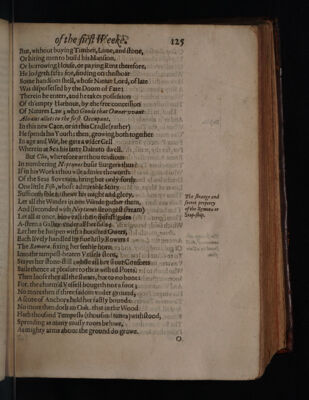 of the first Weeke. 125
But, without buying Timber, Lime, and stone,
Or hiring men to build his Mansion,
Or borrowing House, or paying Rent therefore,
He lodgeth safe: for, finding on the shoar
Some handsom shell, whose Native Lord, of late
Was dispossessed by the Doom of Fate;
Therein he enters, and he takes possession
Of th'empty Harbour, by the free concession
Of Natures Law; who Goods that Owner want
Alwaies allots to the first Occupant.
In this new Cace, or in this Cradle (rather)
He spends his Youth: then, growing both together
In age and Wit, he gets a wider Cell
Wherein at Sea his later Daies to dwell.
But Clio, wherefore art thou
In numbering Neptunes busie Burgers thus?
If in his Works thou wilt admire the worth
Of the Seas Soverain, bring but only forth
One little Fish, whose admirable Story
Sufficeth sole to shewe his might and glory.
Let all the Windes in one Winde gather them,
And (seconded with Neptunes strongest stream)
Let all at once blow all their stiffest gales
A-stern a Galley under all her sails;
Let her be holpen with a hundred Owers,
Each lively handled by five lusty Rowers:
The Remora, fixing her feeble horn
Into the tempest-beaten Vessels stern,
Stayes her stone-still, while all her stout Consorts
Saile thence at pleasure to their wished Ports.
Then loose they all the sheats, but to no boot:
For, the charm'd Vessell bougeth not a foot;
No more then if three fadom under ground,
A score of Anchors held her fastly bound:
No more then doth an Oak, that in the Wood
Hath thousand Tempests (thousand times) withstood;
Spreading as many massy roots belowe,
As mighty arms above the ground do growe.
The strange and
secret property
of the Remora or
Stop-ship.
O